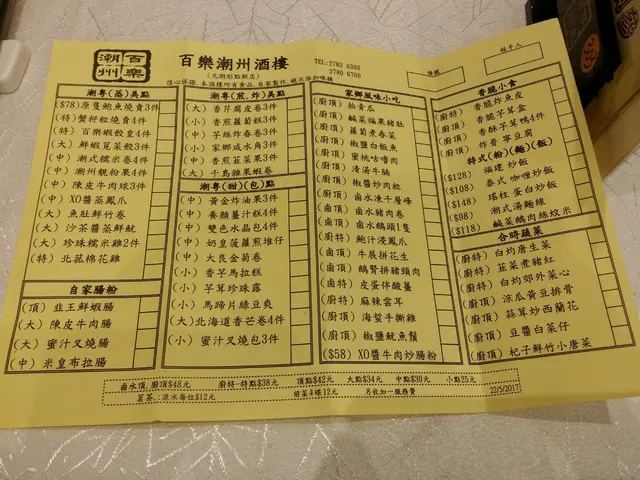 百樂
潮州
百樂潮州酒樓
(元朗形點新店)
信心保證,本酒樓所有食品,自家製作,絕不添加味精
TEL:2780 6300
2780 6700
檯號
經手人
潮粵(蒸)美點
($78)原隻鮑魚燒賣3件
(特)蟹籽粒燒賣4件
(特)百樂蝦餃皇4件
(大)鮮蝦莧菜餃3件
(中)潮式糯米卷4件
(中)潮州靚粉果4件
(中)陳皮牛肉球3件
(中)XO醬蒸鳳爪
(大)魚肚鮮竹卷
(大)沙茶醬蒸鮮魷
(大)珍珠糯米雞2件
(特)北菇棉花雞
自家腸粉
(頂)韭王鮮蝦腸
(大)陳皮牛肉腸
(大)蜜汁叉燒腸
(中)米皇布拉腸
潮粵(煎,炸)美點
(大)香芹腐皮卷3件
(小)香煎蘿蔔糕3件
(中)芋絲炸春卷3件
(小)家鄉咸水角3件
(中)香煎韮菜果3件
(大)千島雜果蝦卷
潮粵(甜)(包)點
(中)黃金炸油果3件
(中)養顏薑汁糕4件
(中)雙色水晶包4件
(中)奶皇菠蘿煎堆仔
(中)大良金菊卷
(小)香芋馬拉糕
(小)芋茸珍珠露
(小)馬蹄片綠豆爽
(大)北海道香芒卷4件
(小)蜜汁叉燒包3件
家鄉風味小吃
(廚頂)拍青瓜
(廚頂)鹹菜福果豬肚
(廚頂)蘿蔔煮春菜
(廚頂)椒鹽白飯魚
(廚頂)蜜桃咕嚕肉
(廚頂)清湯牛腩
(廚頂)椒醬炒肉粒
(廚頂)鹵水凍千層峰
(鹵頂)鹵水豬肉卷
(鹵頂)鹵水鵝頭1隻
(廚特)鮑汁浸鳳爪
(鹵頂)牛展拼花生
(鹵頂)鵝腎拼豬頭肉
(鹵特)皮蛋伴酸薑
(廚特)麻辣雲耳
(廚頂)海蜇手撕雞
(廚頂)椒鹽魷魚鬚
($58)XO醬牛肉炒腸粉
香脆小食
(廚特)香脆炸魚皮
(廚頂)香脆芋耳盒
(廚頂)香酥芋茸鴨4件
(廚頂)炸普寧豆腐
特式(粉)(麵)(飯)
($128)福建炒飯
($108)泰式咖喱炒飯
($148)瑤柱蛋白炒飯
($98)潮式湯麵線
($118)鹹菜鵝肉絲炆米
合時蔬菜
(廚特)白灼唐生菜
(廚特)韮菜煮豬紅
(廚特)白灼郊外菜心
(廚頂)涼瓜黃豆排骨
(廚頂)蒜茸炒西蘭花
(廚頂)豆醬白菜仔
(廚頂)杞子鮮竹小唐菜
鹵水頂,廚頂$48元 廚特-特點$38元 頂點$42元 大點$34元 中點$30元 小點25元
茗茶,:滾水每位$12元 前菜4碟12元 另收加一服務費 22/5/2017